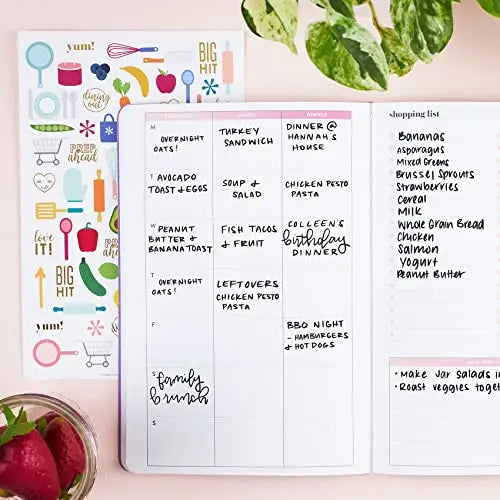 yum!
BIG
HIT
dining
out
PREP
ahead
love
it!
BIG
HIT
yum!
LUNCH
DINNER
M
OVERNIGHT
OATS!
TURKEY
SANDWICH
DINNER @
HANNAH'S
HOUSE
T
AVOCADO
TOAST & EGGS
SOUP &
SALAD
CHICKEN PESTO
PASTA
W
PEANUT
BUTTER &
BANANA TOAST
FISH TACOS
& FRUIT
COLLEEN'S
birthday
DINNER
T
OVERNIGHT
OATS!
LEFTOVERS
CHICKEN PESTO
PASTA
F
BBQ NIGHT
- HAMBURGERS
& HOT DOGS
S
family
brunch
S
shopping list
Bananas
Asparagus
Mixed Greens
Brussel Sprouts
Strawberries
Cereal
Milk
Whole Grain Bread
Chicken
Salmon
Yogurt
Peanut Butter
• Make Jar Salads
• Roast veggies